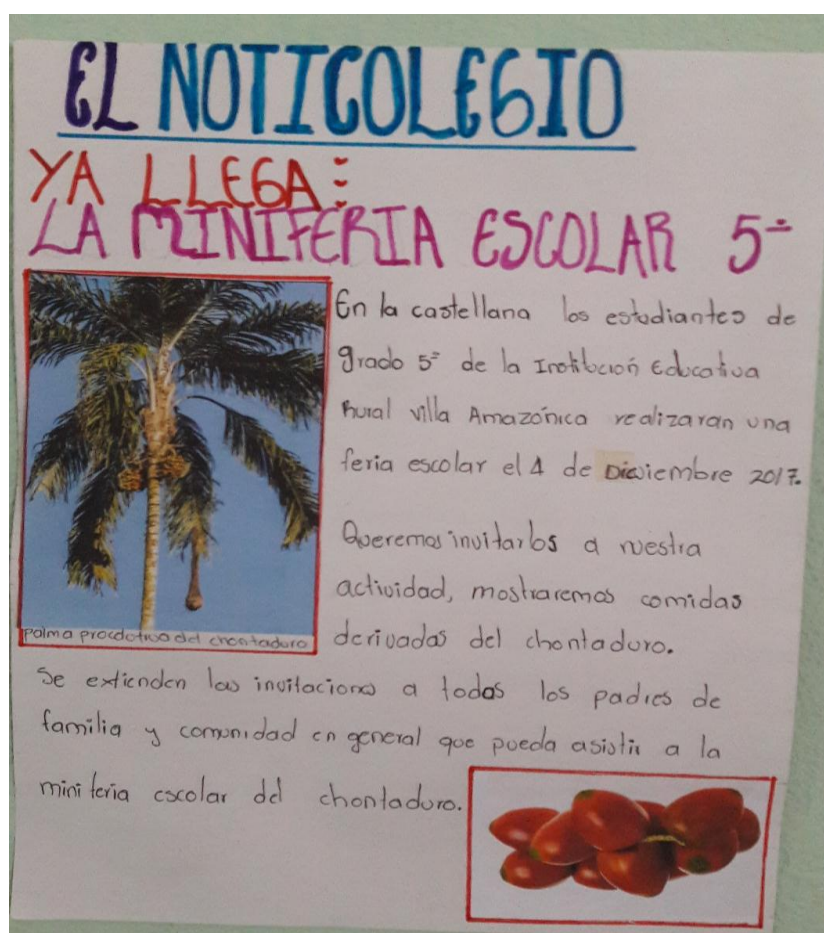 EL NOTICOLEGIO
YA LLEGA:
LA MINIFERIA ESCOLAR 5º
En la castellana los estudiantes de
grado 5º de la Institución Educativa
Rural villa Amazónica realizaran una
feria escolar el 4 de Diciembre 2017.
Queremos invitarlos a nuestra
actividad, mostraremos comidas
derivadas del chontaduro.
palma productiva del chontaduro
Se extienden las invitaciones a todos los padres de
familia y comunidad en general que pueda asistir a la
mini feria escolar del chontaduro.